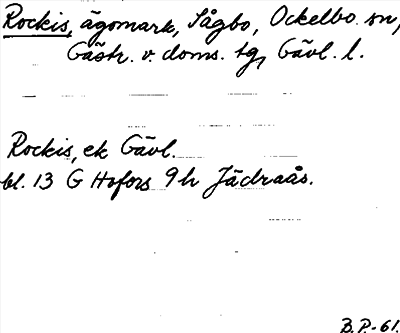 Rockis, ägomark, Sågbo, Ockelbo sn,
Gästr. v. doms. tg, Gävl. l.
Rockis, ek Gävl.
bl. 13 G Hofors 9 h Jädraås.
B.P.-61.